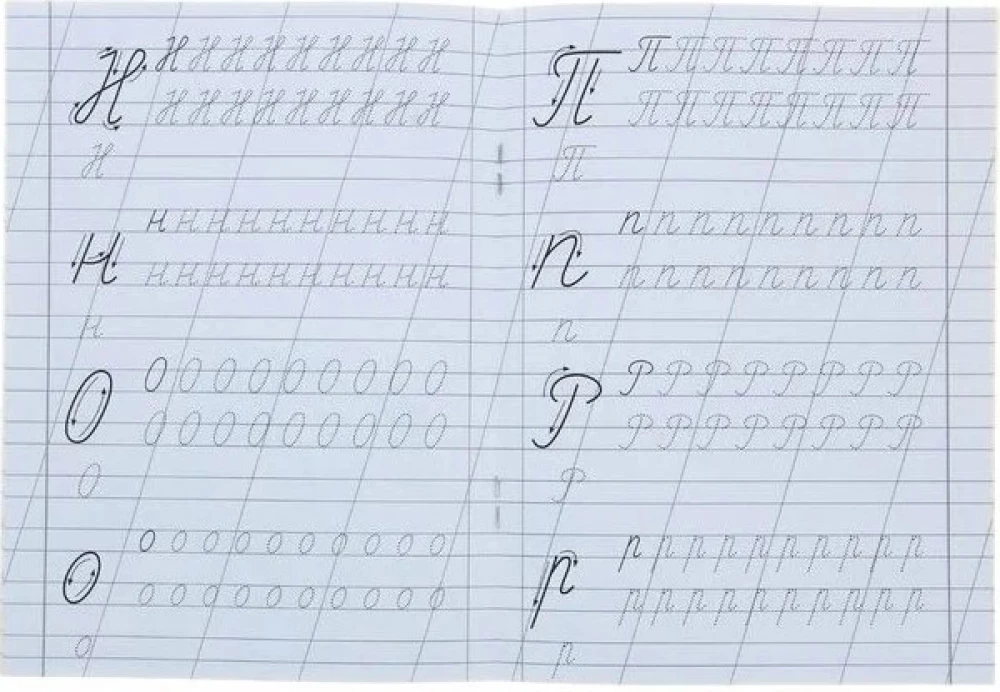 Н Н Н Н Н Н Н Н Н Н
Н Н Н Н Н Н Н Н Н
Н
н н н н н н н н н н н
н н н н н н н н н н
н
О О О О О О О О О О
О О О О О О О О О
О
о о о о о о о о о о о
о о о о о о о о о о
о
П П П П П П П П П
П П П П П П П П
П
п п п п п п п п п п
п п п п п п п п п
п
Р Р Р Р Р Р Р Р Р
Р Р Р Р Р Р Р Р
Р
р р р р р р р р р р р
р р р р р р р р р р
р